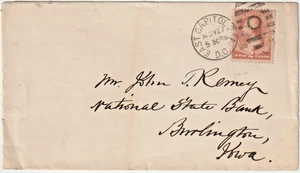 EAST CAPITOL
NOV 27
5 30 PM
D.C.
Mr. John T. Remey
National State Bank,
Burlington,
Iowa.